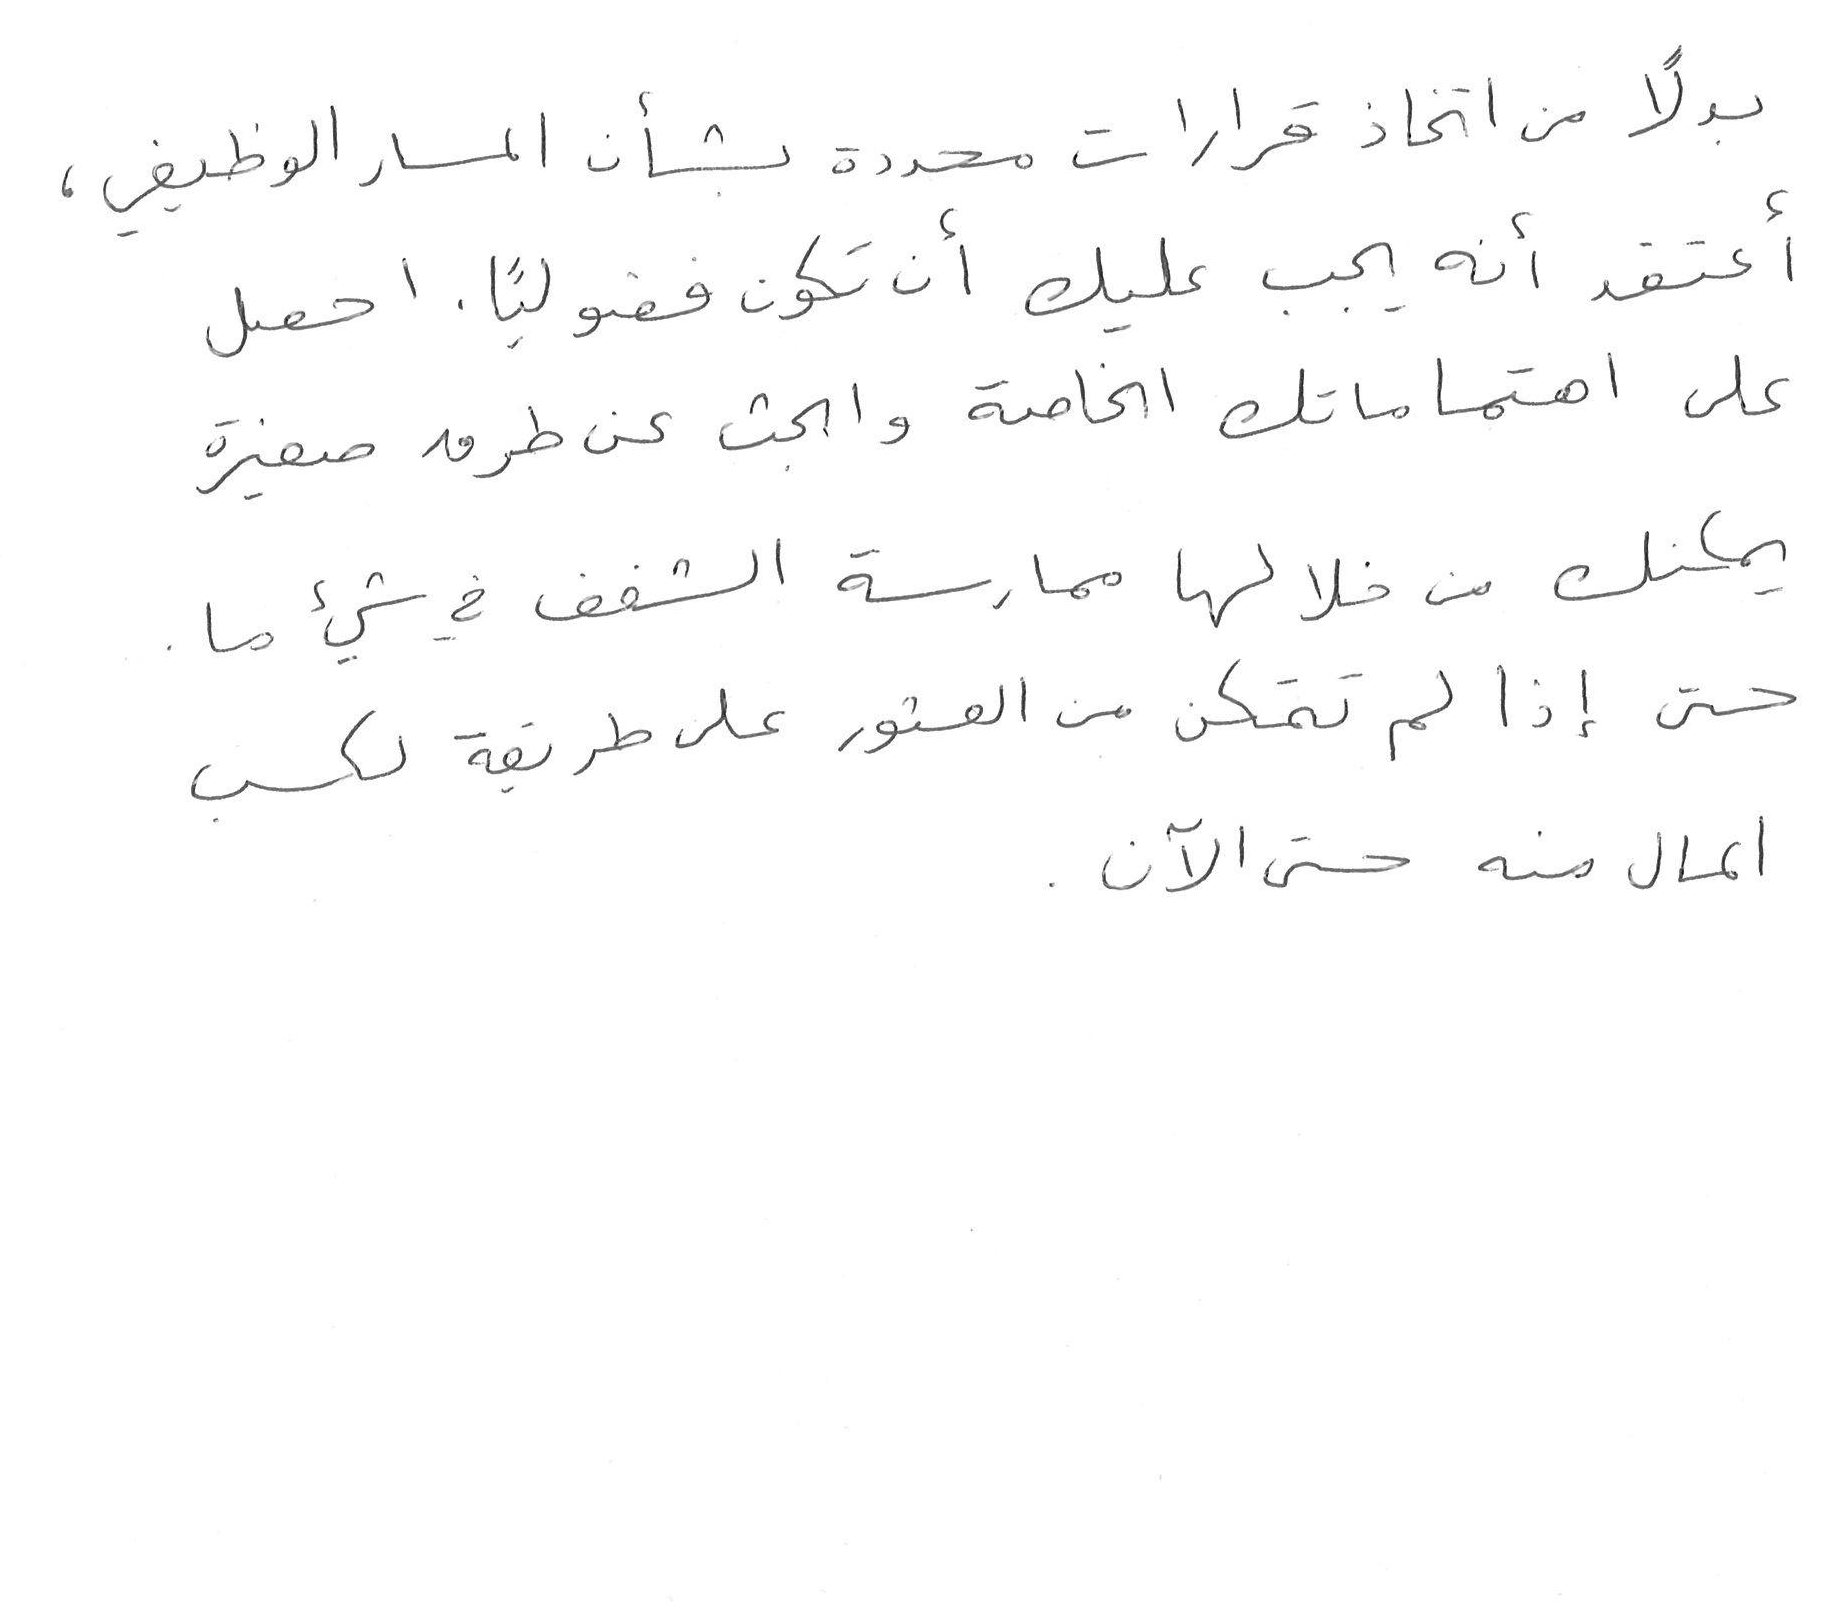 بدلًا من اتخاذ قرارات محددة بشأن المسار الوظيفي،
أعتقد أنه يجب عليك أن تكون فضوليًا. احصل
على اهتماماتك الخاصة وابحث عن طرق صغيرة
يمكنك من خلالها ممارسة الشغف في شيء ما.
حتى إذا لم تتمكن من العثور على طريقة لكسب
المال منه حتى الآن.